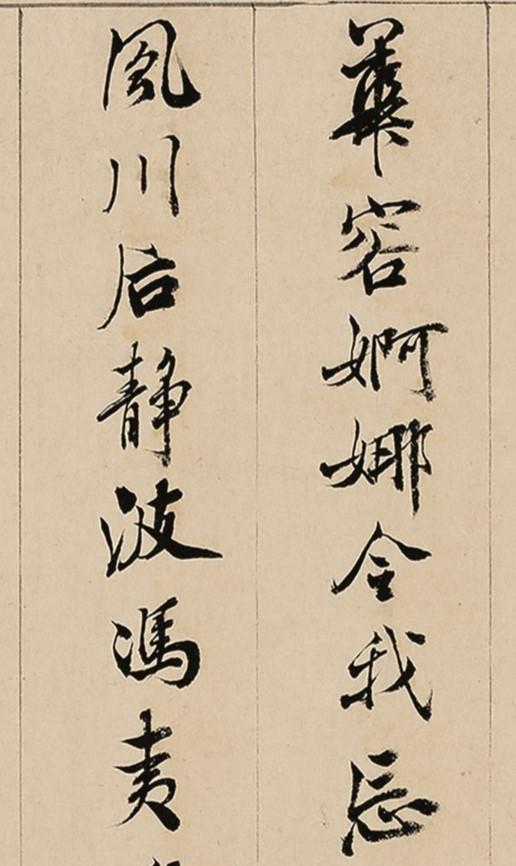 華容婀娜令我忘
風川后靜波馮夷